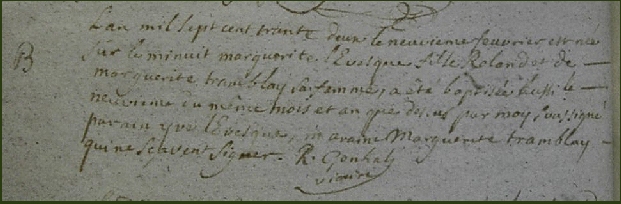 B
L'an mil sept cent trante deux le neuvieme feuvrier, est née
sur le minuit marguerite l'Evesque fille Roland et de
marguerite tramblay sa femme, a été baptisée aussi le
neuvieme du même mois et an que dessus par moy soussigné
parain yves l'Evesque, maraine Marguerite tramblay
qui ne sçavent signer. R. Gonhaly
vicaire